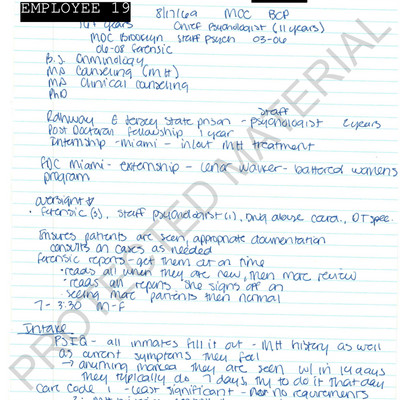 EMPLOYEE 19
8/17/69 MOC BCP
14+ years Chief Psychologist (11 years)
MDC Brooklyn Staff Psych 03-06
06-08 forensic
B.S. Criminology
MA Counseling (MH)
MA Clinical counseling
PhD
Staff
Rahway E Jersey State prison - psychologist 2 years
Post Doctoral Fellowship 1 year
Internship - Miami - in/out MH treatment
FDC Miami - externship - Lenor Walker - battered womens
program
oversight
• Forensic (3), Staff psychologist (1), Drug abuse coord., DT spec.
Ensures patients are seen, appropriate documentation
consults on cases as needed
Forensic reports - get them out on time
• reads all when they are new, then more review
• reads all reports she signs off on
seeing more patients then normal
7 - 3:30 M-F
Intake
PSIQ - all inmates fill it out - MH history as well
as current symptoms they feel
→ anything marked they are seen w/in 14 days
they typically do 7 days, try to do it that day
Care code 1 - least significant - no requirements
PROTECTED MATERIAL